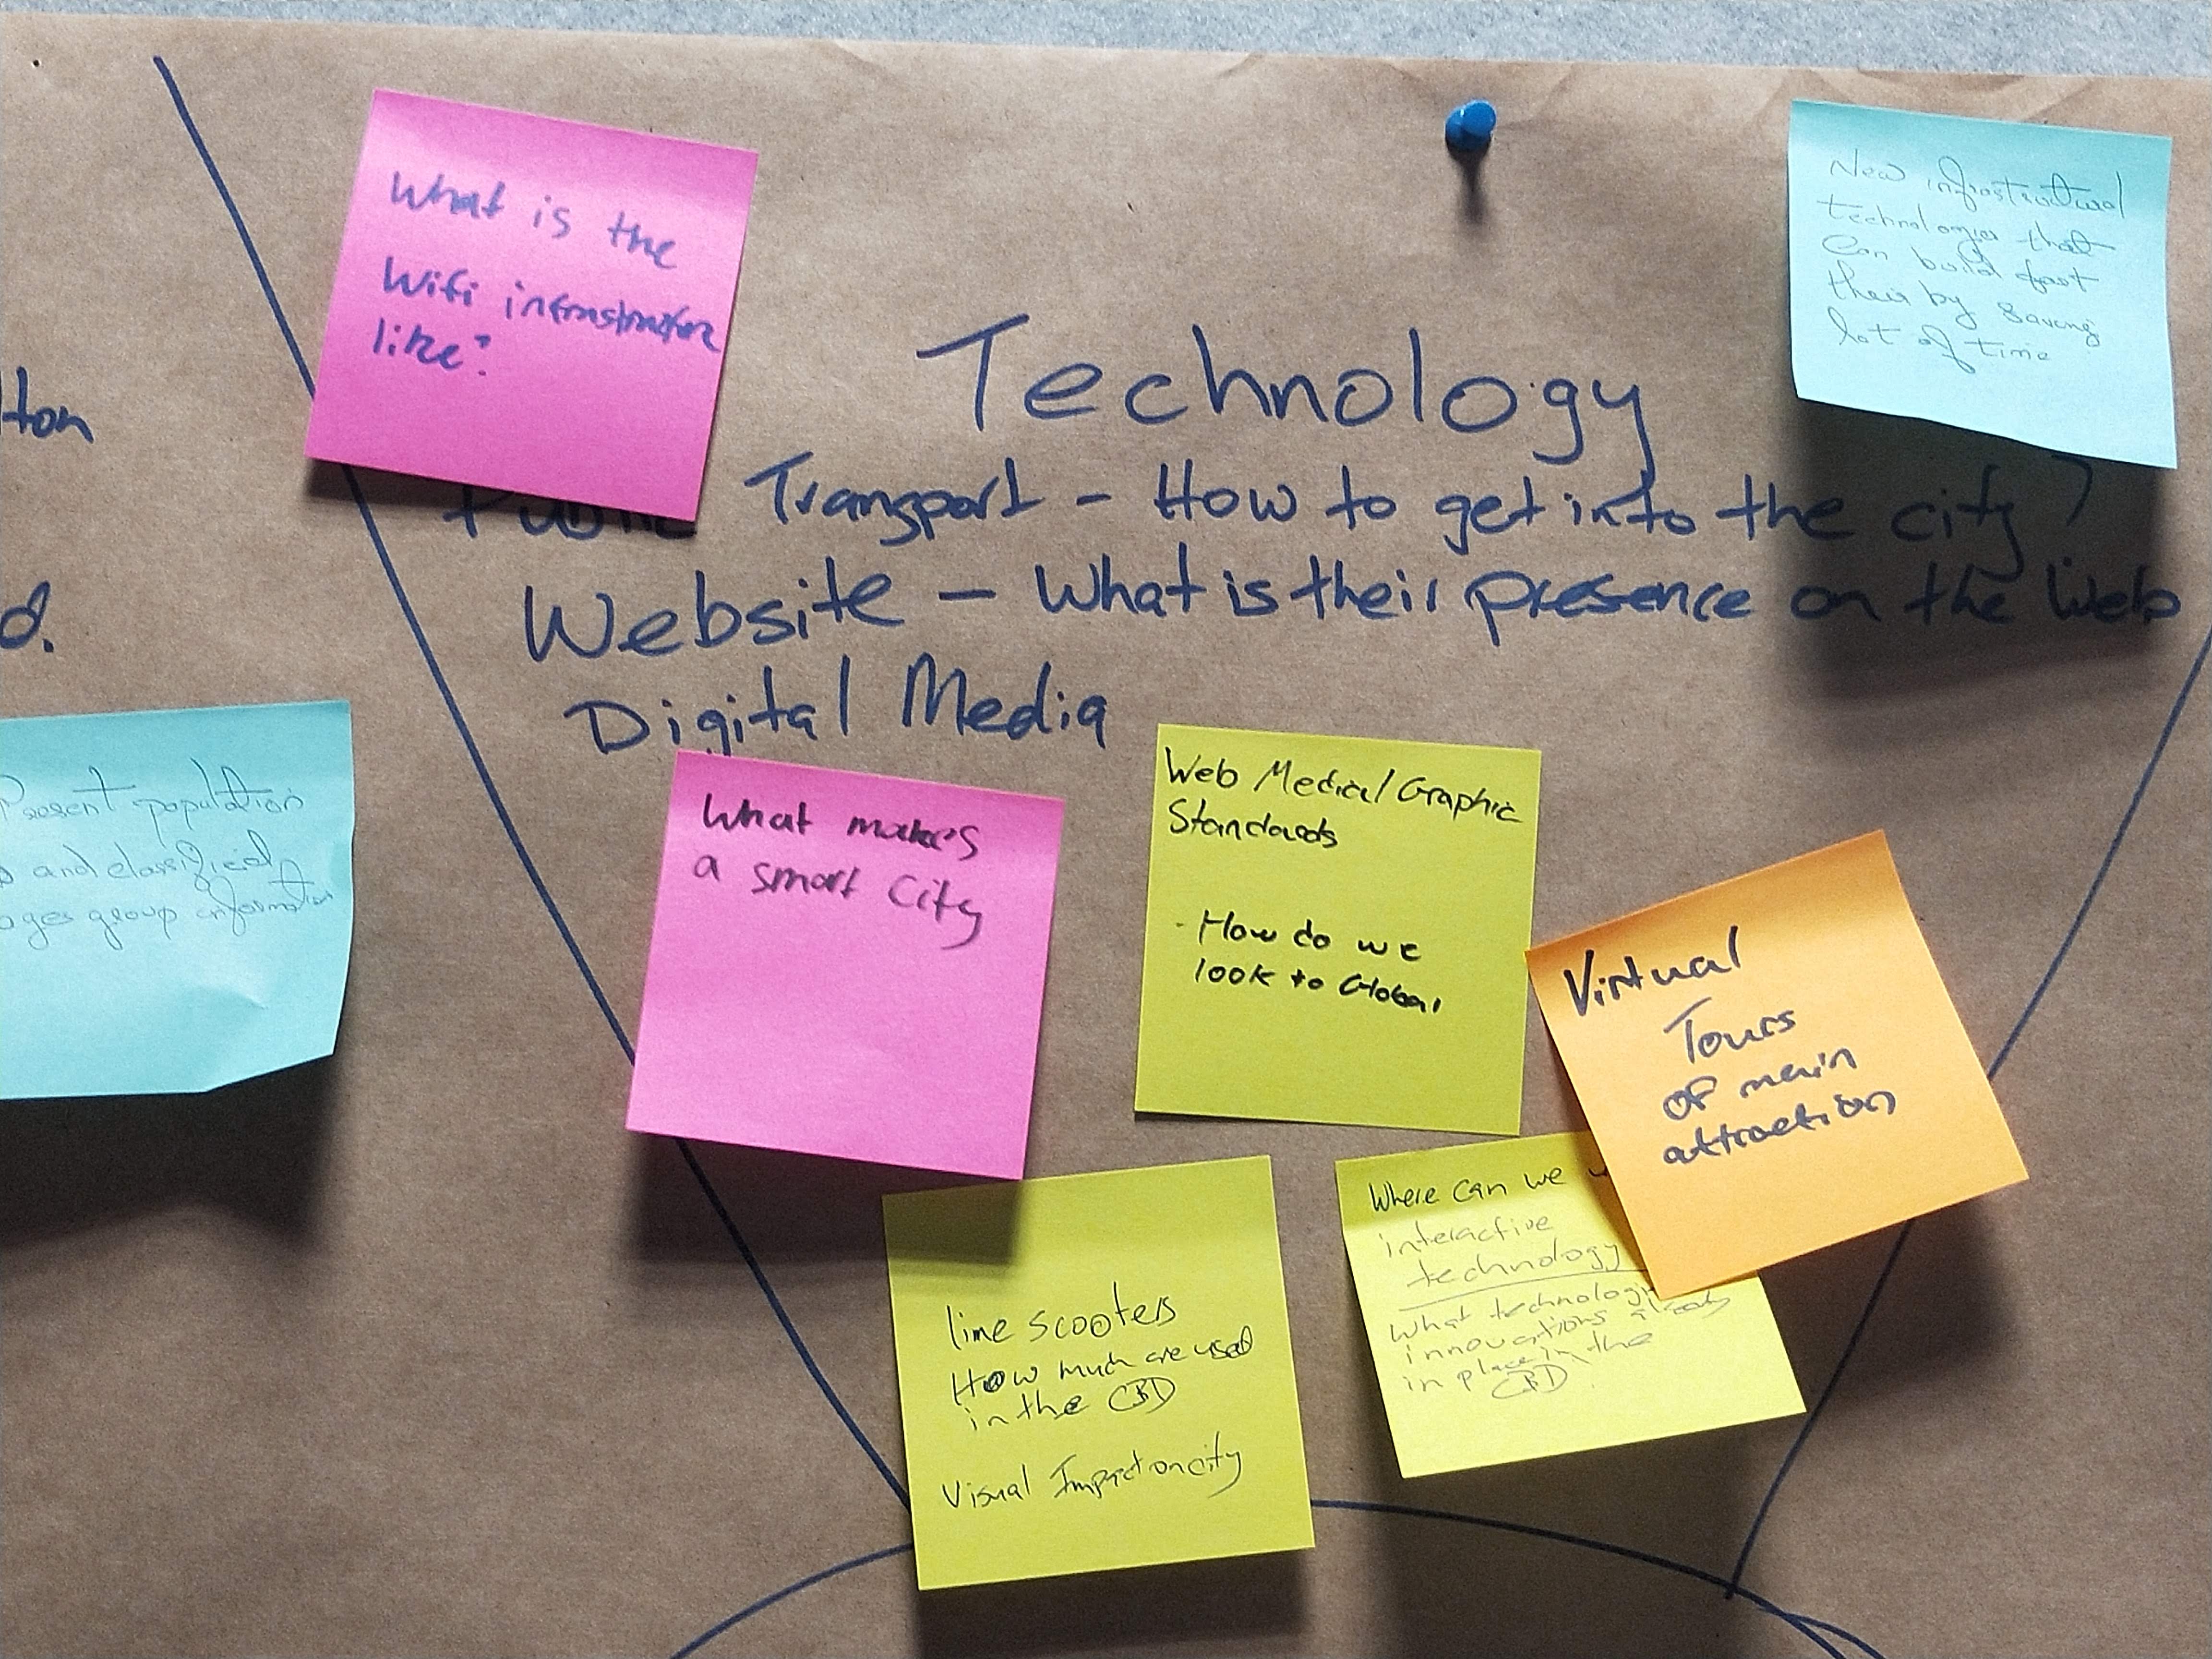 What is the
Wifi infrastructure
like?
New infrastructural
technologies that
can build fast
their by saving
lot of time
Technology
Public Transport - How to get into the city?
Website - What is their presence on the Web
Digital Media
lton
d.
Present population
and classified
ages group information
What makes
a smart City
Web Medical/Graphic
Standards
- How do we
look to Global
Virtual
Tours
of main
attraction
lime scooters
How much are used
in the CBD
Visual Impact on city
Where can we
interactive
technology
What technologi
innovations already
in place in the
CBD